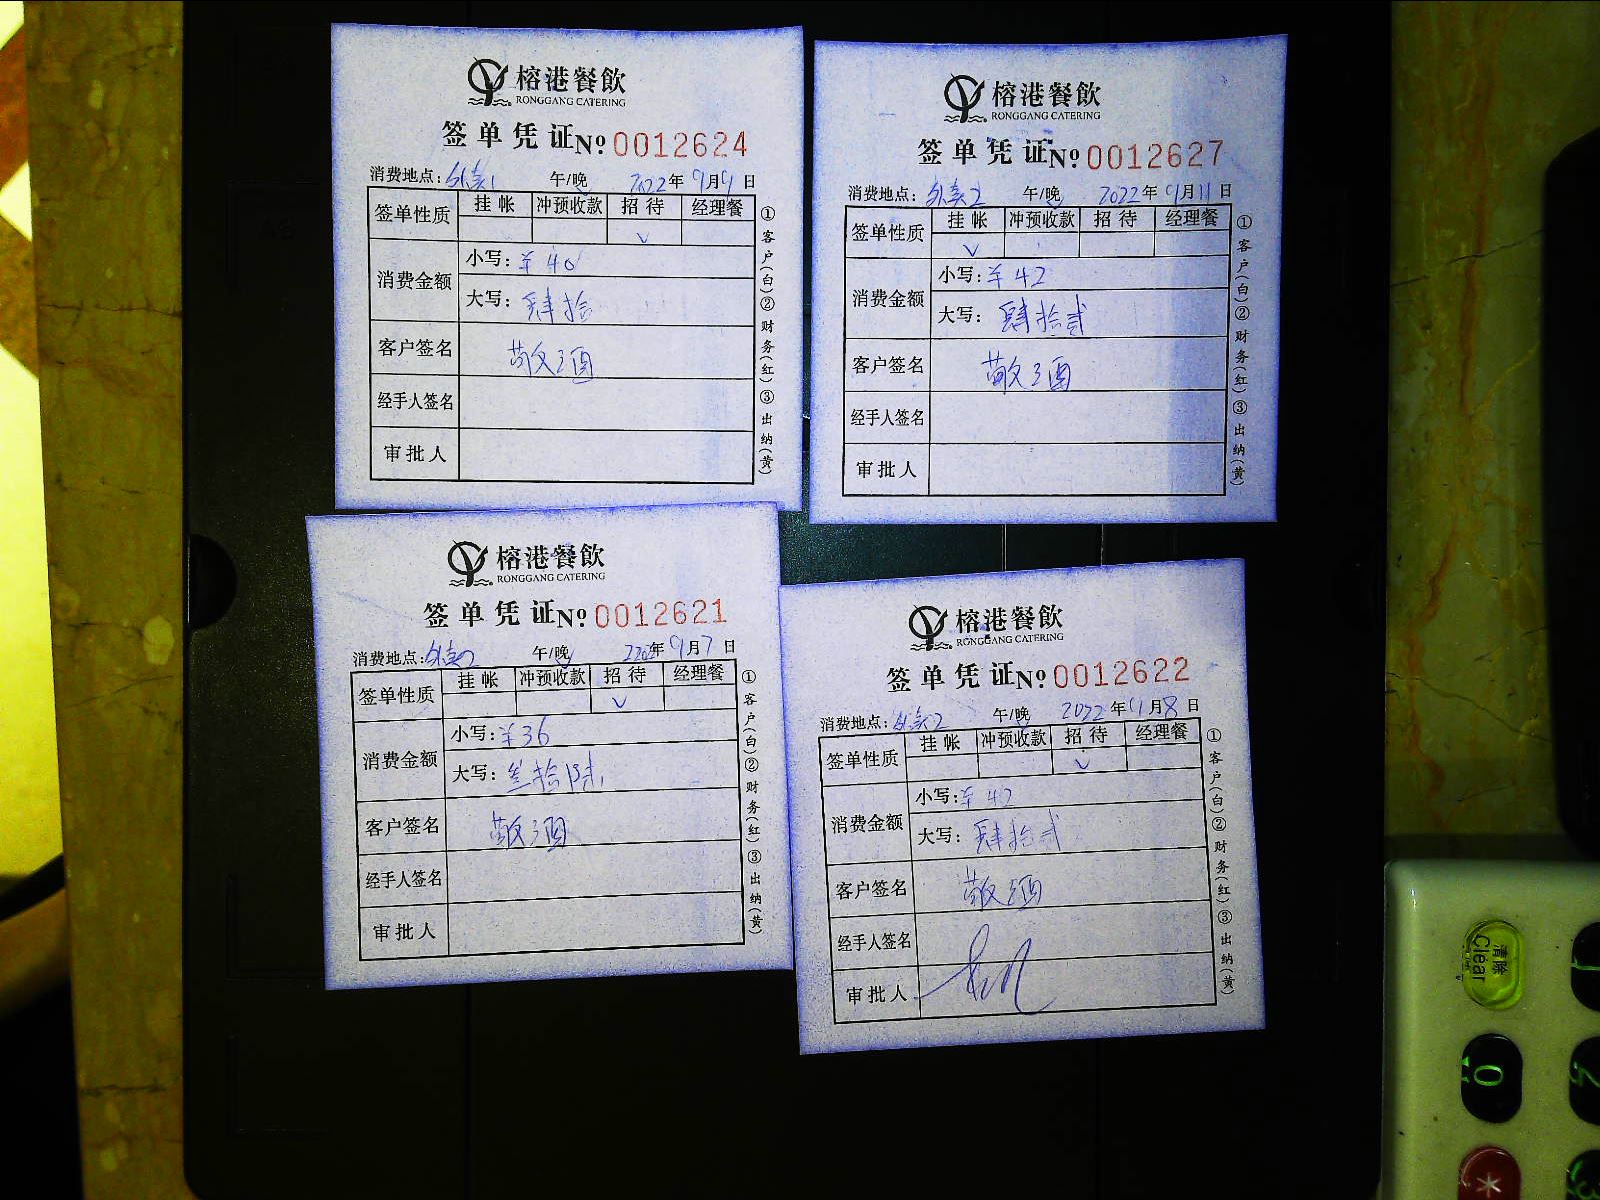 榕港餐飲
RONGGANG CATERING
签单凭证 Nº 0012624
消费地点: 外卖1 午/晚 2022年9月9日
签单性质 挂帐 冲预收款 招待 经理餐
✓
消费金额 小写: ¥40
大写: 肆拾
客户签名 敬酒
经手人签名
审批人
①客户(白)②财务(红)③出纳(黄)
榕港餐飲
RONGGANG CATERING
签单凭证 Nº 0012627
消费地点: 外卖2 午/晚 2022年9月11日
签单性质 挂帐 冲预收款 招待 经理餐
✓
消费金额 小写: ¥42
大写: 肆拾贰
客户签名 敬酒
经手人签名
审批人
①客户(白)②财务(红)③出纳(黄)
榕港餐飲
RONGGANG CATERING
签单凭证 Nº 0012621
消费地点: 外卖2 午/晚 年9月7日
签单性质 挂帐 冲预收款 招待 经理餐
✓
消费金额 小写: ¥36
大写: 叁拾陆
客户签名 敬酒
经手人签名
审批人
①客户(白)②财务(红)③出纳(黄)
榕港餐飲
RONGGANG CATERING
签单凭证 Nº 0012622
消费地点: 外卖2 午/晚 2022年9月8日
签单性质 挂帐 冲预收款 招待 经理餐
✓
消费金额 小写: ¥42
大写: 肆拾贰
客户签名 敬酒
经手人签名
审批人
①客户(白)②财务(红)③出纳(黄)
清除
Clear
0
*